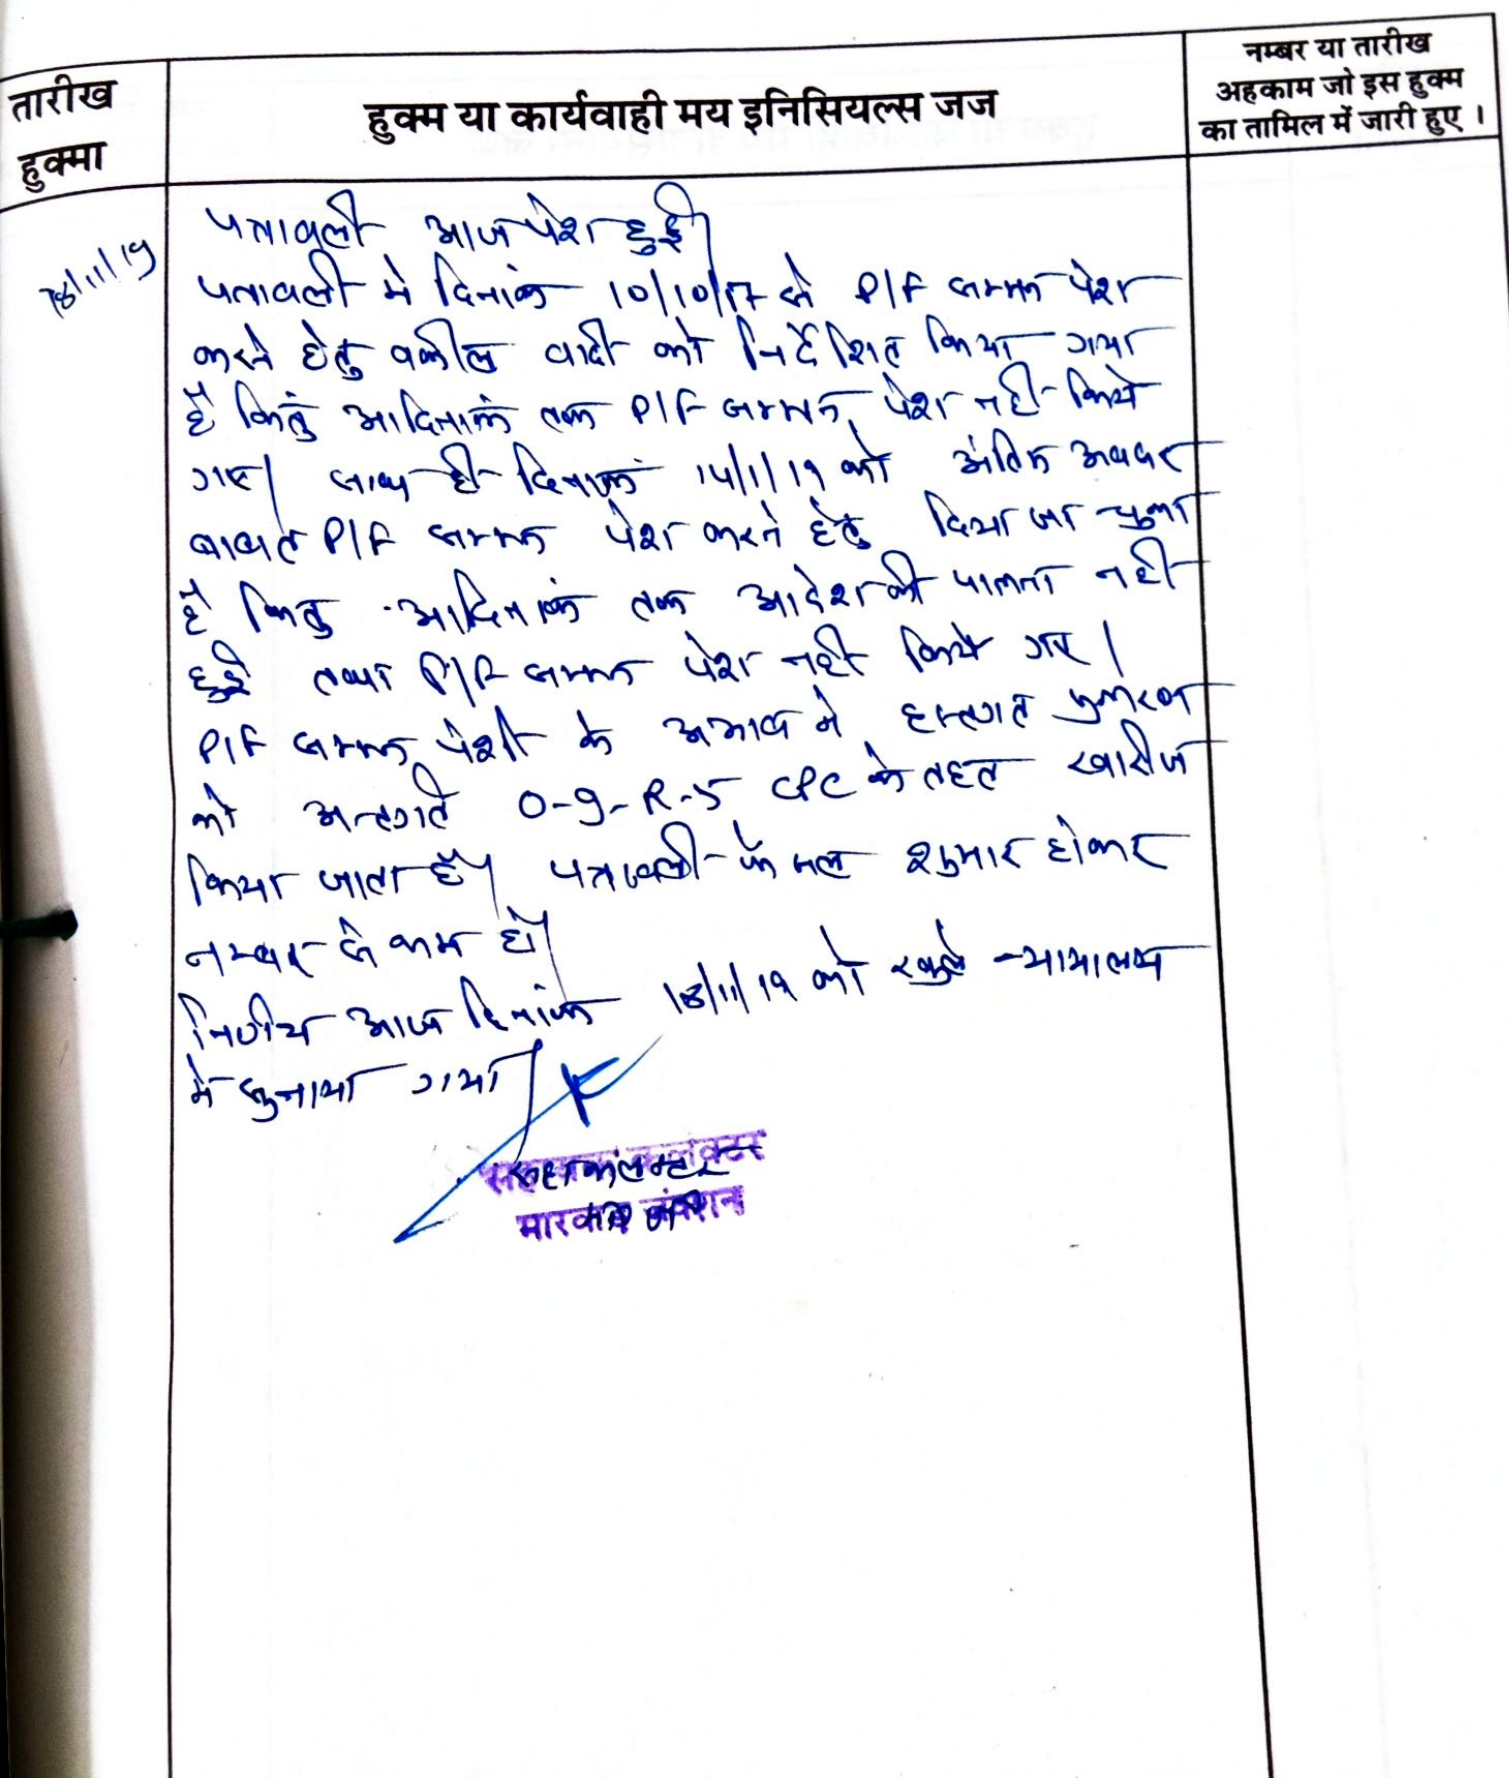 तारीख
हुक्मा
हुक्म या कार्यवाही मय इनिसियल्स जज
नम्बर या तारीख
अहकाम जो इस हुक्म
का तामिल में जारी हुए ।
18/11/19
पत्रावली आज पेश हुई।
पत्रावली मे दिनांक 10/10/17 से P/F सम्मन पेश
करने हेतु वकील वादी को निर्देशित किया गया
है किंतु आदिनांक तक P/F सम्मन पेश नही किये
गए। साथ ही दिनांक 14/1/19 को अंतिम अवसर
बाबत P/F सम्मन पेश करने हेतु दिया जा चुका
है किंतु आदिनांक तक आदेश की पालना नही
हुई तथा P/F सम्मन पेश नही किये गए।
P/F सम्मन पेशी के अभाव मे हस्तगत प्रकरण
को अन्तर्गत O-9-R-5 CPC के तहत खारीज
किया जाता है। पत्रावली फैसल शुमार होकर
नम्बर से कम हो।
निर्णय आज दिनांक 18/11/19 को खुले न्यायालय
मे सुनाया गया।
सहायक कलेक्टर
मारवाड़ जंक्शन